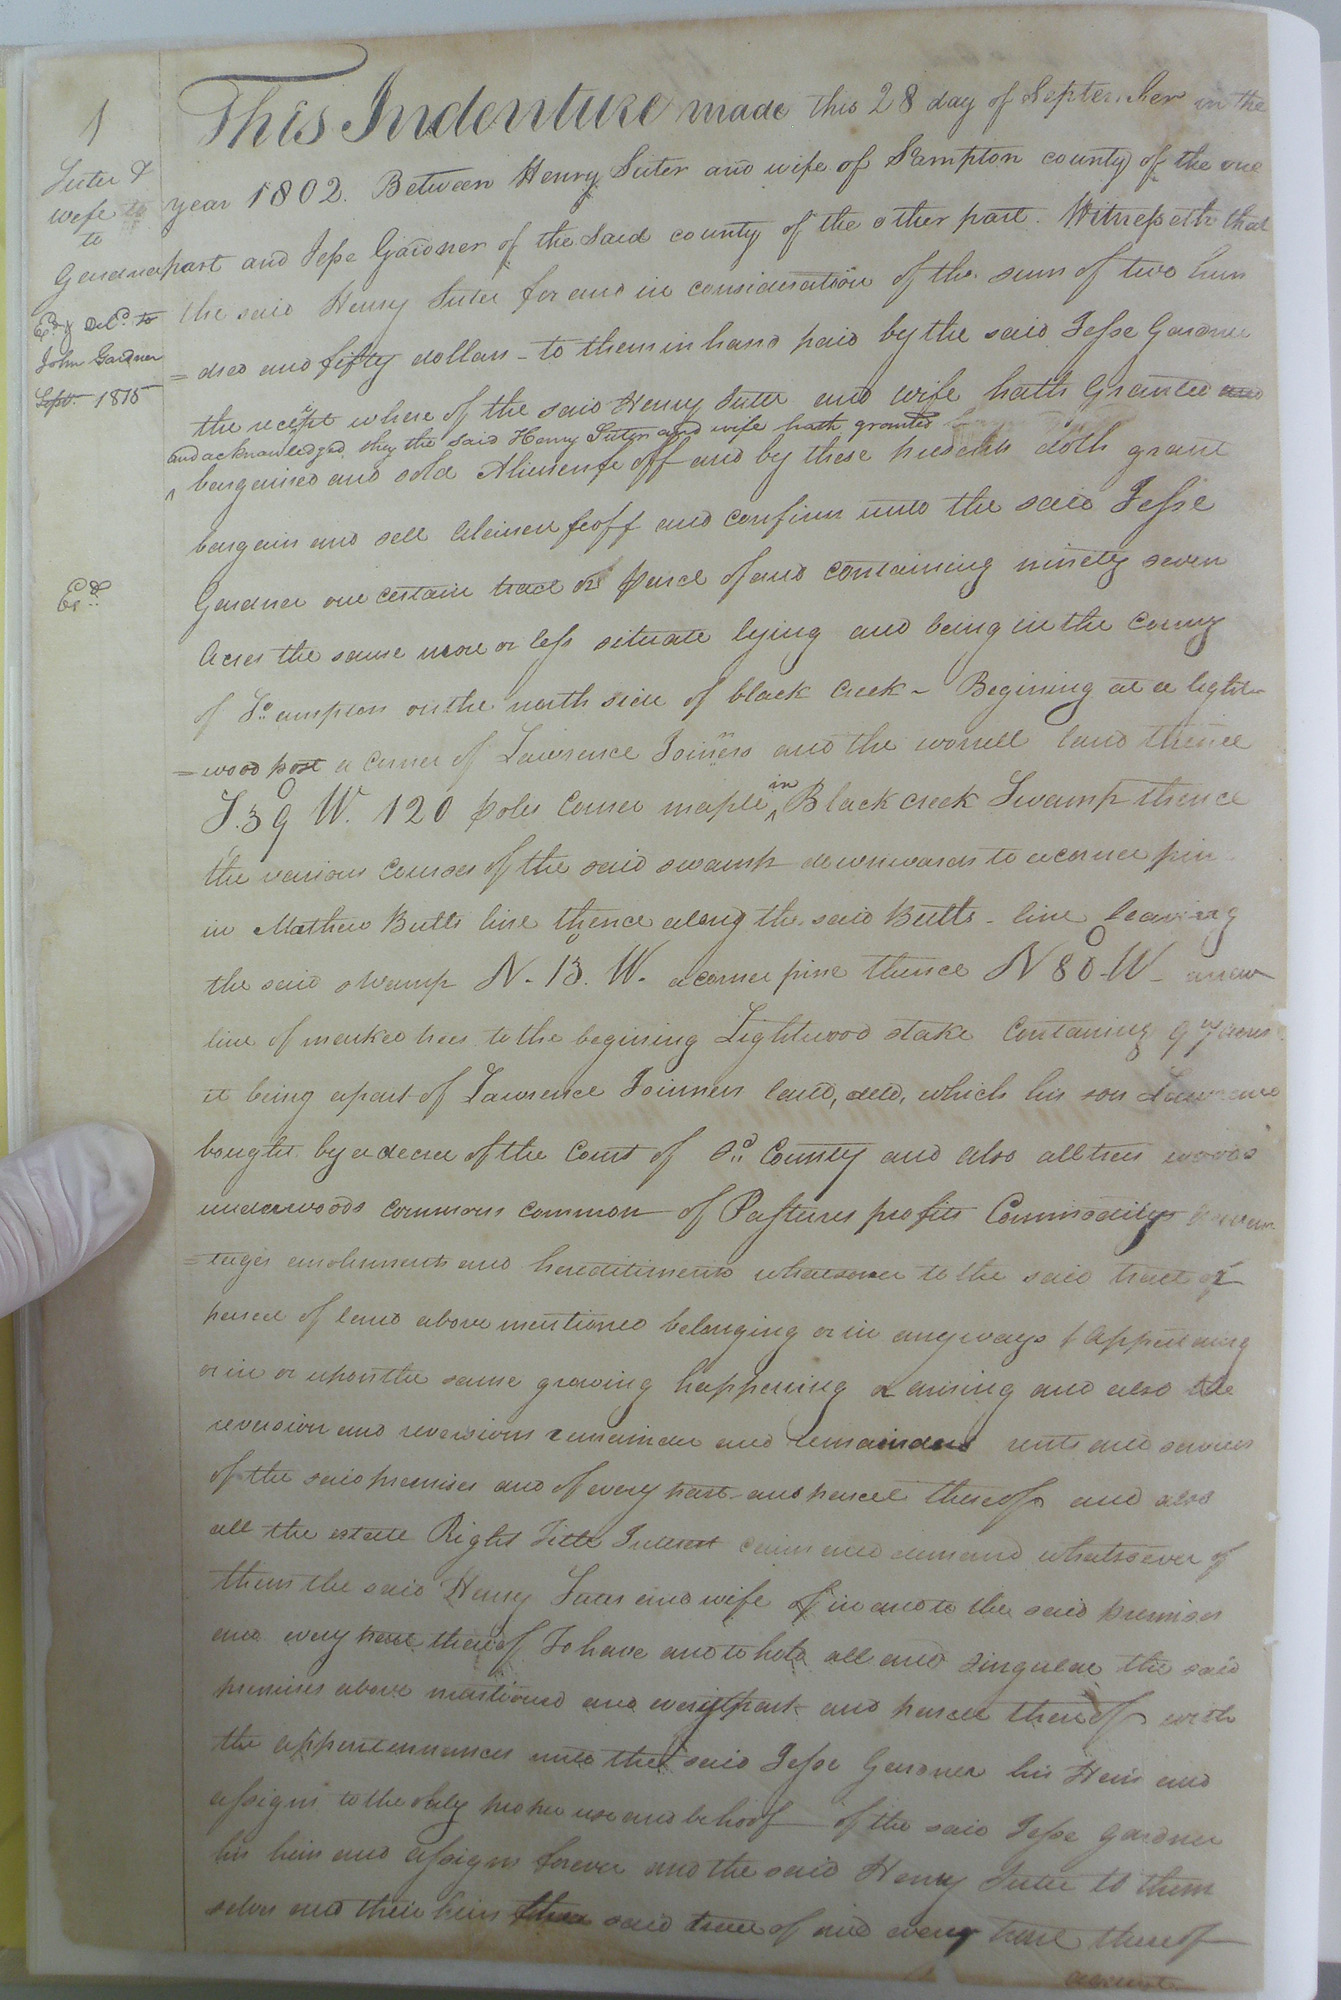 1
Suter &
wife to
to
Gardner
Ex.d & Del.d to
John Gardner
Sept. 1815
Ex.d
This Indenture made this 28 day of September in the
year 1802. Between Henry Suter and wife of S.ampton county of the one
part and Jesse Gardner of the Said county of the other part. Witnesseth that
the said Henry Suter for and in consideration of the sum of two hun
=dred and fifty dollars - to them in hand paid by the said Jesse Gardner
the receipt where of the said Henry Suter and wife hath Granted and
and acknowledged, they the said Henry Suter and wife hath granted
bargained and sold Alienenfe off and by these presents doth grant
bargain and sell Aleinen feoff and confirm unto the said Jesse
Gardner one certain tract or parcel of and containing ninety seven
Acres the same more or less situate lying and being in the County
of So.ampton on the north side of black Creek - Begining at a light
=wood post a corner of Lawrence Joiners and the worrell land thence
S. 39 W. 120 poles Corner maple in Black creek Swamp thence
the various courses of the said swamp downwards to a corner pin
in Mathew Butts line thence along the said Butts - line leaving
the said swamp N. 13. W. a corner pine thence N 80 W - a new
line of marked trees to the begining Lightwood stake Containing 97 acres
it being a part of Lawrence Joinners land, decd, which his son Lawrence
bought by a decree of the Court of s.d County and also all trees woods
underwoods commons common of Pastures profits Commodities Advan
=tages emoluments and hereditiments whatsoever to the said tract or
parcel of land above mentioned belonging or in anyways appertaining
or in or upon the same growing happening or arising and also the
reversion and reversions remainder and remainders rents and services
of the said premises and of every part and parcel thereof and also
all the estate Right Title Interest claim and demand whatsoever of
them the said Henry Suter and wife of in and to the said premises
and every part thereof To have and to hold all and singular the said
premises above mentioned and every part and parcel thereof with
the appurtennances unto the said Jesse Gardner his Heirs and
assigns to the only proper use and behoof of the said Jesse Gardner
his heirs and assigns forever and the said Henry Suter to them
selves and their heirs said tract of and every part thereof
against